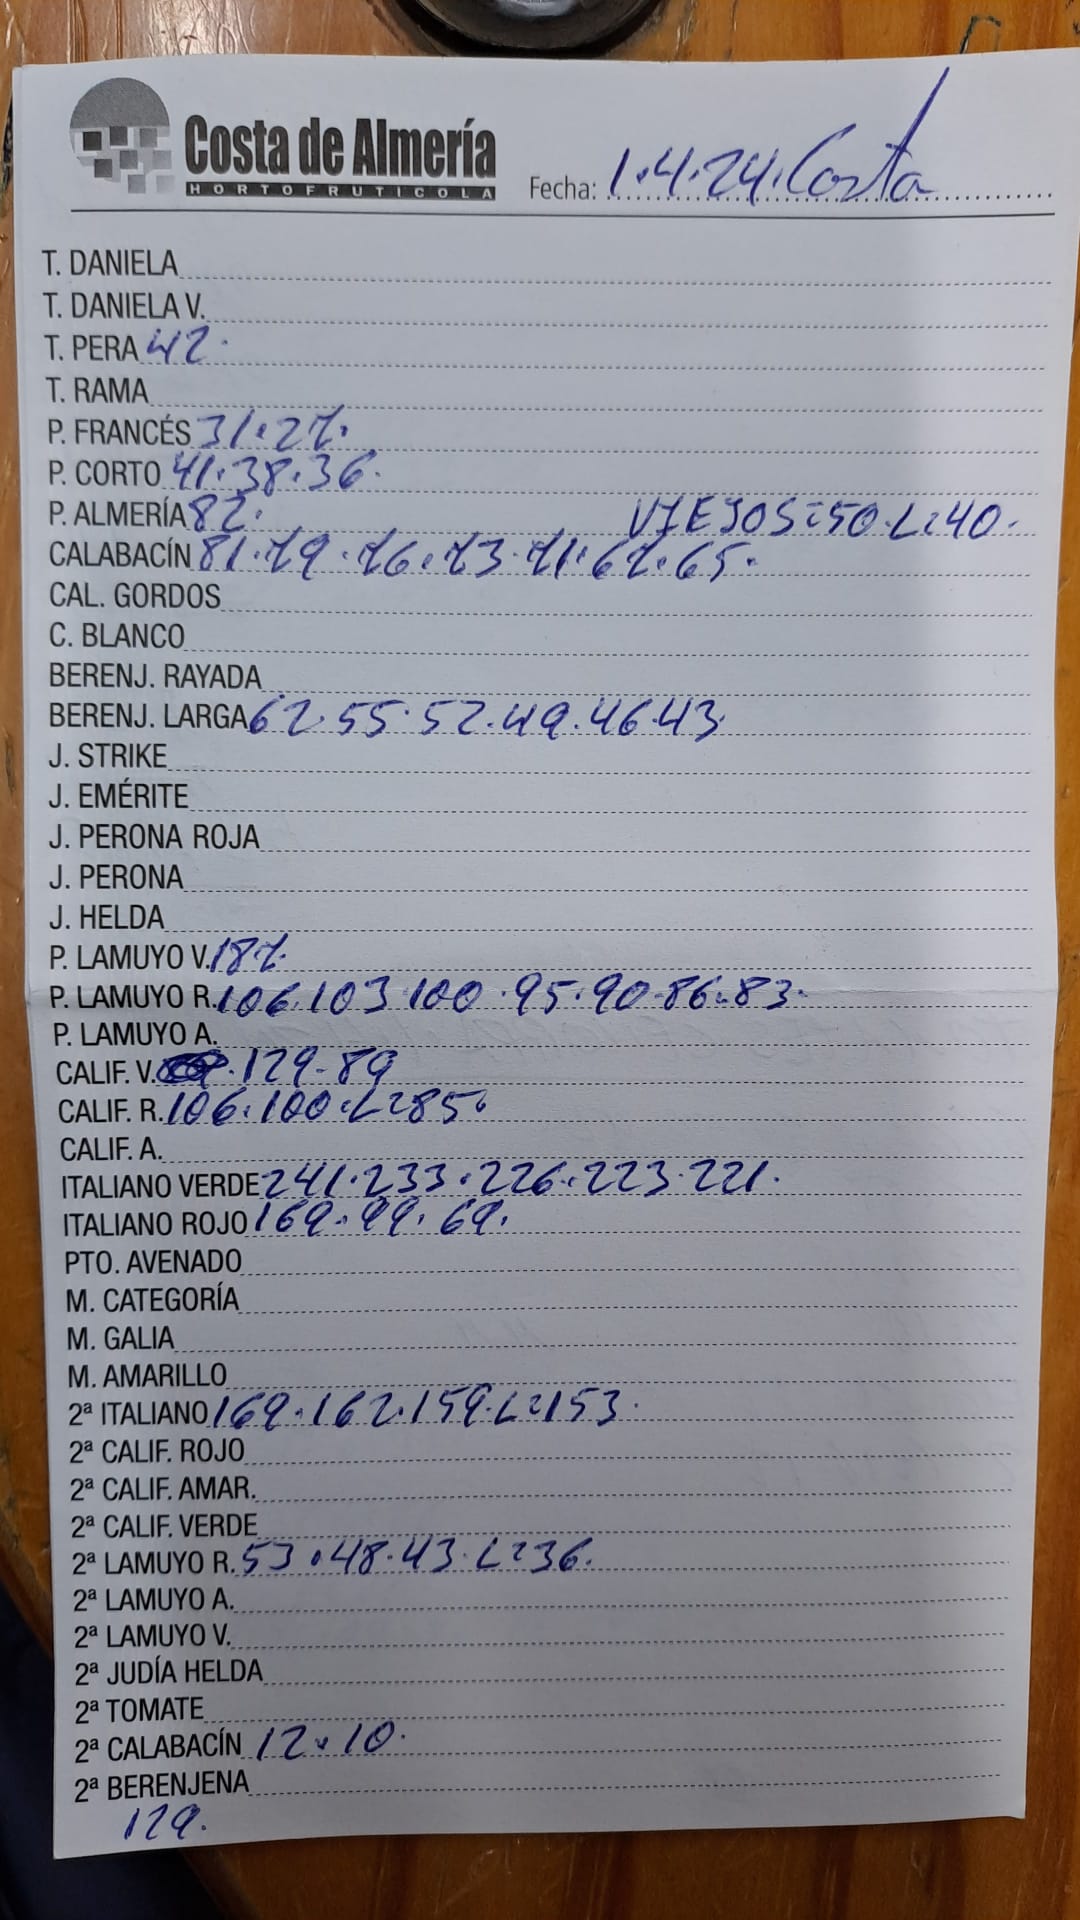 Costa de Almería
HORTOFRUTICOLA
Fecha: 1.4.24. Costa
T. DANIELA
T. DANIELA V.
T. PERA 42.
T. RAMA
P. FRANCÉS 31.27.
P. CORTO 41.38.36.
P. ALMERÍA 82. VIEJOS=50.L=40.
CALABACÍN 81.79.76.73.71.67.65.
CAL. GORDOS
C. BLANCO
BERENJ. RAYADA
BERENJ. LARGA 62.55.52.49.46.43.
J. STRIKE
J. EMÉRITE
J. PERONA ROJA
J. PERONA
J. HELDA
P. LAMUYO V. 187.
P. LAMUYO R. 106.103.100.95.90.86.83.
P. LAMUYO A.
CALIF. V. .129-89
CALIF. R. 106.100.L=85.
CALIF. A.
ITALIANO VERDE 241.233.226.223.221.
ITALIANO ROJO 169.99.69.
PTO. AVENADO
M. CATEGORÍA
M. GALIA
M. AMARILLO
2ª ITALIANO 169.162.159.L=153.
2ª CALIF. ROJO
2ª CALIF. AMAR.
2ª CALIF. VERDE
2ª LAMUYO R. 53.48.43.L=36.
2ª LAMUYO A.
2ª LAMUYO V.
2ª JUDÍA HELDA
2ª TOMATE
2ª CALABACÍN 12.10.
2ª BERENJENA
129.